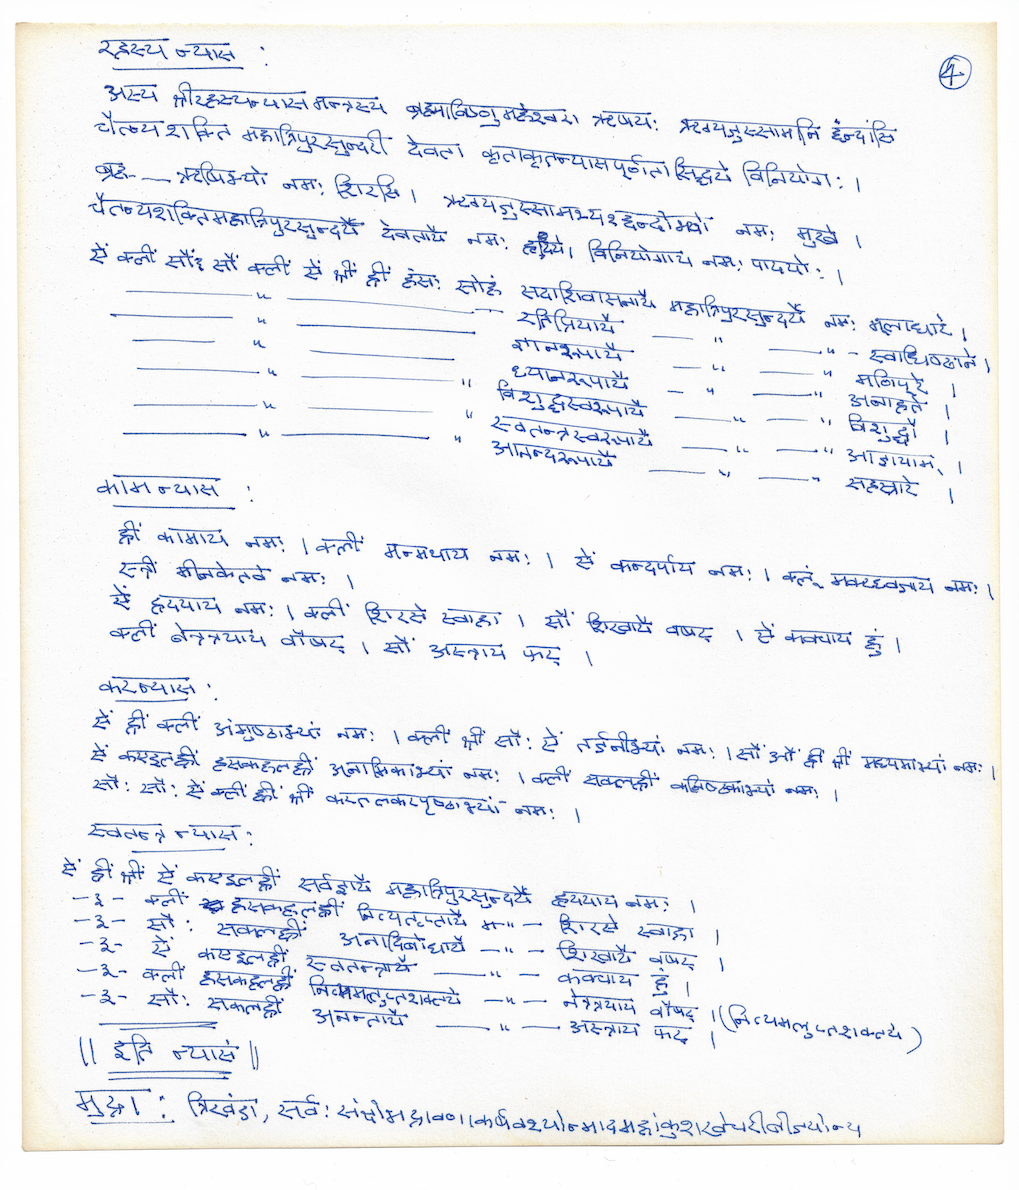 रहस्य न्यास :
4
अस्य श्रीरहस्यन्यासमन्त्रस्य ब्रह्माविष्णुमहेश्वरा ऋषयः ऋग्यजुस्सामानि छंन्दांसि
चैतन्यशक्ति महात्रिपुरसुन्दरी देवता कृताकृतन्यासपूर्णता सिद्धये विनियोगः ।
ब्रह्म - — ऋषिभ्यो नमः शिरसि । ऋग्यजुस्सामभ्यश्छन्दोभ्यो नमः मुखे ।
चैतन्यशक्तिमहात्रिपुरसुन्दर्यै देवतायै नमः हृदिये। विनियोगाय नमः पादयोः ।
ऐं क्लीं सौंः सौं क्लीं ऐं श्रीं ह्रीं हंसः सोहं सदाशिवासनायै महात्रिपुरसुन्दर्यै नमः मूलाधारे ।
—— " —— रतिप्रियायै — " — " - स्वाधिष्ठाने ।
—— " —— ज्ञानरूपायै — " — " मणिपूरे ।
—— " —— ध्यानरूपायै — " — " अनाहते ।
—— " —— " विशुद्धस्वरूपायै — " — " विशुद्धौ ।
—— " —— " स्वतन्त्रस्वरूपायै — " — " आज्ञायाम् ।
—— " —— " आनन्दरूपायै — " — " सहस्रारे ।
काम न्यास :
ह्रीं कामाय नमः । क्लीं मन्मथाय नमः । ऐं कन्दर्पाय नमः । क्लूं मकरध्वजाय नमः ।
स्त्रीं मीनकेतवे नमः ।
ऐं हृदयाय नमः । क्लीं शिरसे स्वाहा । सौं शिखायै वषट् । ऐं कवचाय हुं ।
क्लीं नेत्रत्रयाय वौषट् । सौं अस्त्राय फट् ।
करन्यास :
ऐं ह्रीं क्लीं अंगुष्ठाभ्यां नमः । क्लीं श्रीं सौः ऐं तर्जनीभ्यां नमः । सौं ओं ह्रीं श्रीं मध्यमाभ्यां नमः ।
ऐं कएइलह्रीं हसकहलह्रीं अनामिकाभ्यां नमः । क्लीं सकलह्रीं कनिष्ठकाभ्यां नमः ।
सौः सौः ऐं क्लीं ह्रीं श्रीं करतलकरपृष्ठाभ्यां नमः ।
स्वतन्त्र न्यास :
ऐं ह्रीं श्रीं ऐं कएइलह्रीं सर्वज्ञायै महात्रिपुरसुन्दर्यै हृदयाय नमः ।
-३- क्लीं हसकहलह्रीं नित्यतृप्तायै म- " - शिरसे स्वाहा ।
-३- सौः सकलह्रीं अनादिबोधायै — " - शिखायै वषट् ।
-३- ऐं कएइलह्रीं स्वतन्त्रायै — " - कवचाय हुं ।
-३- क्लीं हसकहलह्रीं नित्यमलुप्तशक्तये - " - नेत्रत्रयाय वौषट् । (नित्यमलुप्तशक्तये)
-३- सौः सकलह्रीं अनन्तायै — " — अस्त्राय फट् ।
|| इति न्यासं ||
मुद्राः : त्रिखंडा, सर्व : संक्षोभद्रावणाकर्षवश्योन्मादमहांकुशखेचरीबीजयोन्य